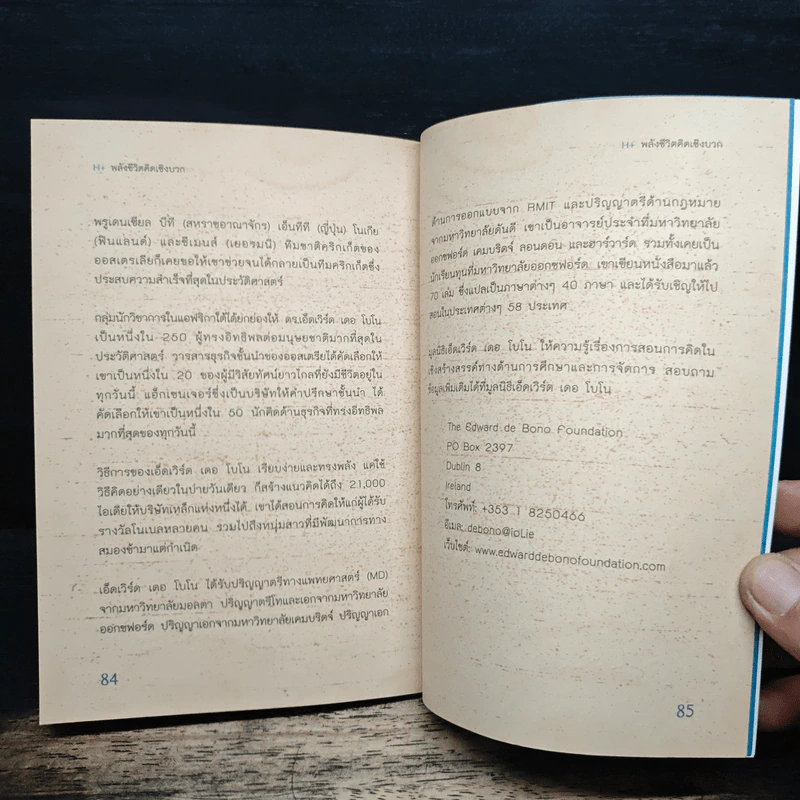 H+ พลังชีวิตคิดเชิงบวก
พรูเดนเชียล บีที (สหราชอาณาจักร) เอ็นทีที (ญี่ปุ่น) โนเกีย
(ฟินแลนด์) และซีเมนส์ (เยอรมนี) ทีมชาติคริกเก็ตของ
ออสเตรเลียก็เคยขอให้เขาช่วยจนได้กลายเป็นทีมคริกเก็ตซึ่ง
ประสบความสำเร็จที่สุดในประวัติศาสตร์
กลุ่มนักวิชาการในแอฟริกาใต้ได้ยกย่องให้ ดร.เอ็ดเวิร์ด เดอ โบโน
เป็นหนึ่งใน 250 ผู้ทรงอิทธิพลต่อมนุษยชาติมากที่สุดใน
ประวัติศาสตร์ วารสารธุรกิจชั้นนำของออสเตรียได้คัดเลือกให้
เขาเป็นหนึ่งใน 20 ของผู้มีวิสัยทัศน์ยาวไกลที่ยังมีชีวิตอยู่ใน
ทุกวันนี้ แอ็กเซนเจอร์ซึ่งเป็นบริษัทให้คำปรึกษาชั้นนำ ได้
คัดเลือกให้เขาเป็นหนึ่งใน 50 นักคิดด้านธุรกิจที่ทรงอิทธิพล
มากที่สุดของทุกวันนี้
วิธีการของเอ็ดเวิร์ด เดอ โบโน เรียบง่ายและทรงพลัง แค่ใช้
วิธีคิดอย่างเดียวในบ่ายวันเดียว ก็สร้างแนวคิดได้ถึง 21,000
ไอเดียให้บริษัทเหล็กแห่งหนึ่งได้ เขาได้สอนการคิดให้แก่ผู้ได้รับ
รางวัลโนเบลหลายคน รวมไปถึงหนุ่มสาวที่มีพัฒนาการทาง
สมองช้ามาแต่กำเนิด
เอ็ดเวิร์ด เดอ โบโน ได้รับปริญญาตรีทางแพทยศาสตร์ (MD)
จากมหาวิทยาลัยมอลตา ปริญญาตรีโทและเอกจากมหาวิทยาลัย
ออกซฟอร์ด ปริญญาเอกจากมหาวิทยาลัยเคมบริดจ์ ปริญญาเอก
84
H+ พลังชีวิตคิดเชิงบวก
ด้านการออกแบบจาก RMIT และปริญญาตรีด้านกฎหมาย
จากมหาวิทยาลัยดันดี เขาเป็นอาจารย์ประจำที่มหาวิทยาลัย
ออกซฟอร์ด เคมบริดจ์ ลอนดอน และฮาร์วาร์ด รวมทั้งเคยเป็น
นักเรียนทุนที่มหาวิทยาลัยออกซฟอร์ด เขาเขียนหนังสือมาแล้ว
70 เล่ม ซึ่งแปลเป็นภาษาต่างๆ 40 ภาษา และได้รับเชิญให้ไป
สอนในประเทศต่างๆ 58 ประเทศ
มูลนิธิเอ็ดเวิร์ด เดอ โบโน ให้ความรู้เรื่องการสอนการคิดใน
เชิงสร้างสรรค์ทางด้านการศึกษาและการจัดการ สอบถาม
ข้อมูลเพิ่มเติมได้ที่มูลนิธิเอ็ดเวิร์ด เดอ โบโน
The Edward de Bono Foundation
PO Box 2397
Dublin 8
Ireland
โทรศัพท์: +353 1 8250466
อีเมล: debono@iol.ie
เว็บไซต์: www.edwarddebonofoundation.com
85